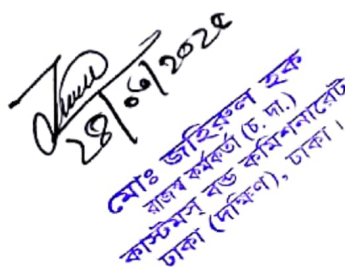 ২৪/০৬/২০২৫
মোঃ জহিরুল হক
রাজস্ব কর্মকর্তা (চ. দা.)
কাস্টমস্ বন্ড কমিশনারেট
ঢাকা (দক্ষিণ), ঢাকা।